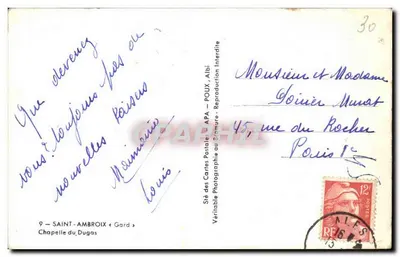 30
Que devenez
vous? toujours pas de
nouvelles Baisers
Louis
9 - SAINT-AMBROIX « Gard »
Chapelle du Dugas
Sté des Cartes Postales APA - POUX, Albi
Véritable Photographie au Bromure - Reproduction Interdite
Monsieur et Madame
Murat
45, rue du Rocher
Paris
12F
RF
ALES